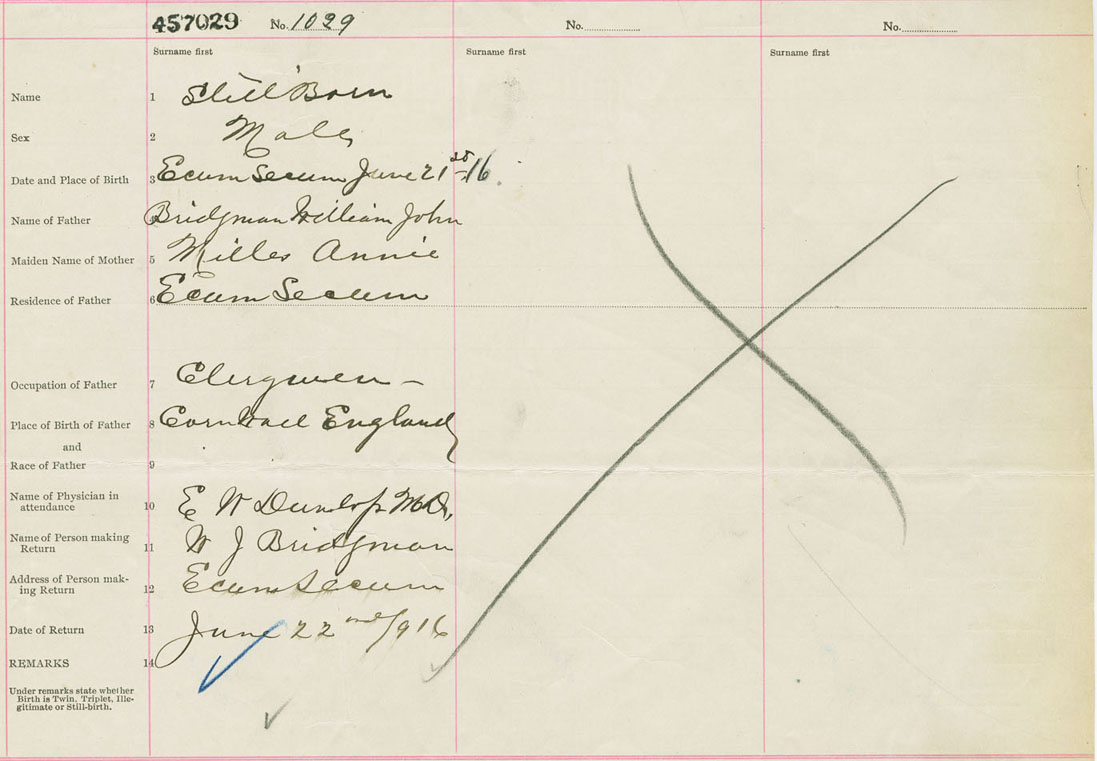 457029 No. 1029 No. No.
Surname first Surname first Surname first
Name 1 Still Born
Sex 2 Male
Date and Place of Birth 3 Ecum Secum June 21st 16.
Name of Father Bridgman William John
Maiden Name of Mother 5 Annie
Residence of Father 6 Ecum Secum
Occupation of Father 7 Clergmen –
Place of Birth of Father 8 Cornwall England
and
Race of Father 9
Name of Physician in
attendance 10 E W Dunlop M.D.
Name of Person making
Return 11 W J Bridgman
Address of Person mak-
ing Return 12 Ecum Secum
Date of Return 13 June 22nd 1916
REMARKS 14
Under remarks state whether
Birth is Twin, Triplet, Ille-
gitimate or Still-birth.